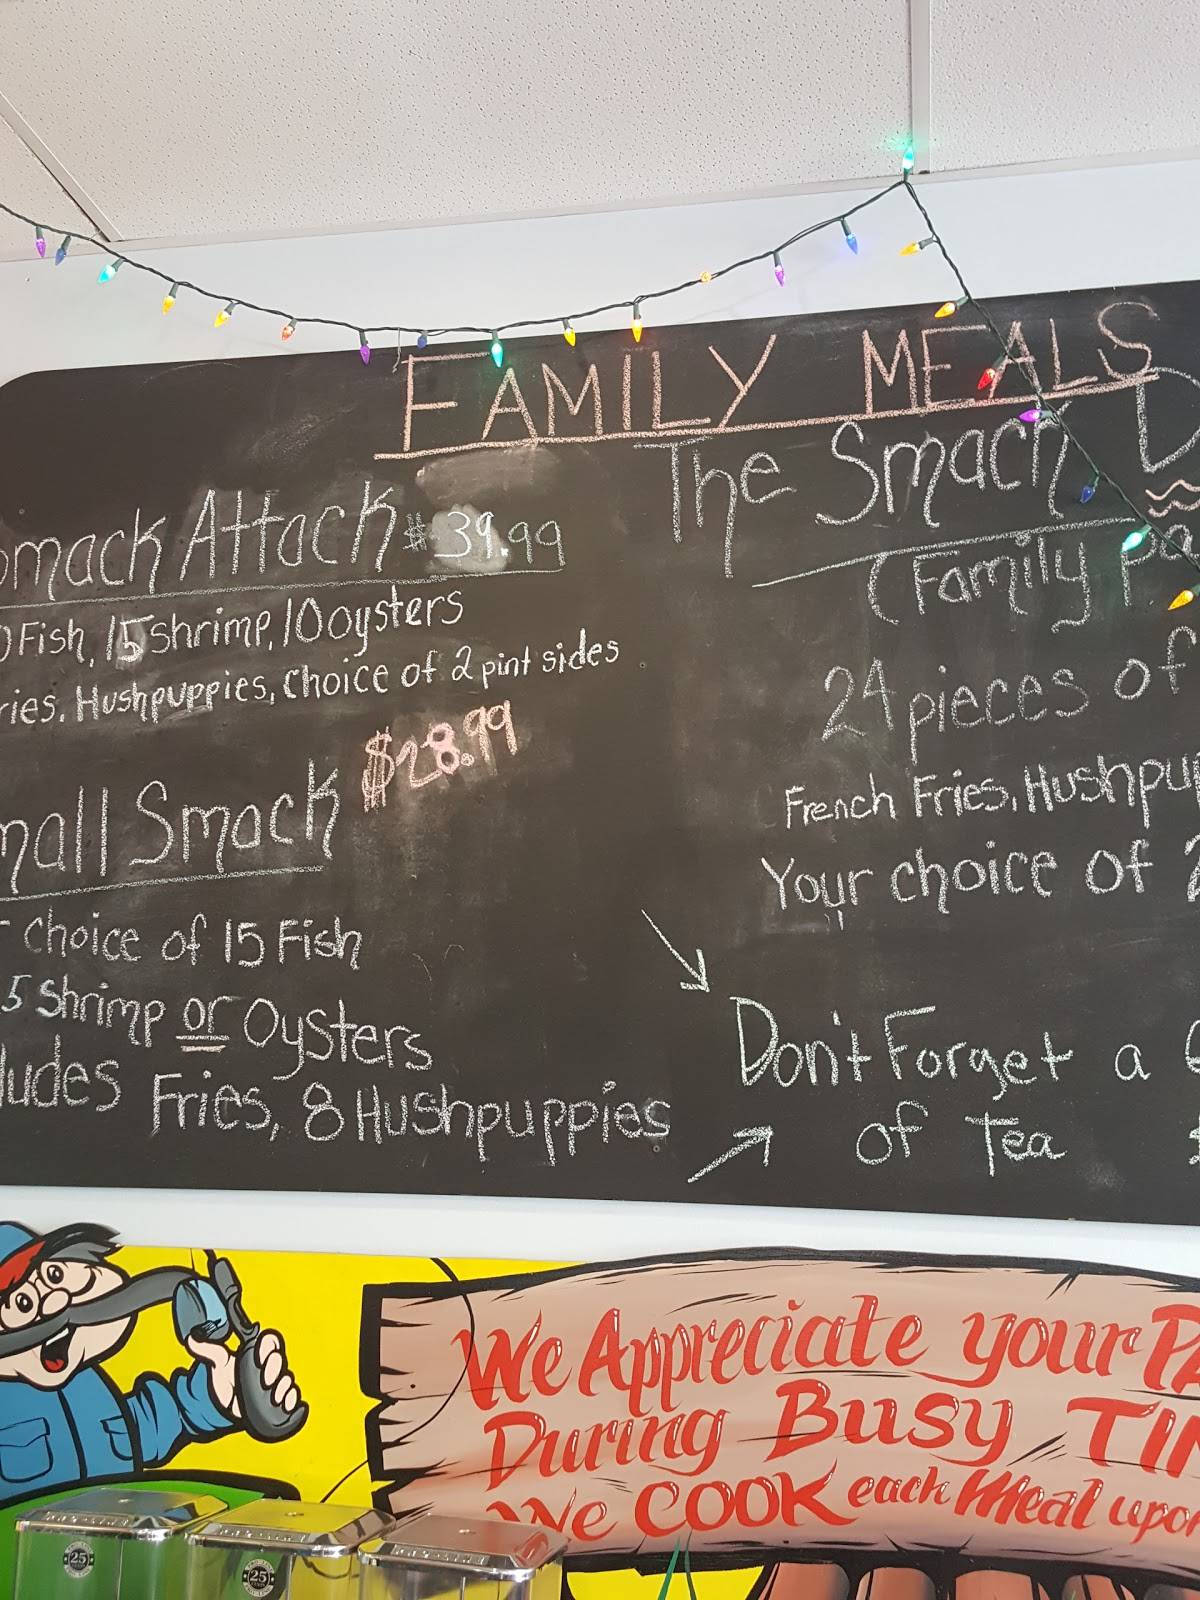 FAMILY MEALS
Smack Attack $39.99
Fish, 15 shrimp, 10 oysters
ries. Hushpuppies, choice of 2 pint sides
$28.99
mall Smack
choice of 15 Fish
5 Shrimp or Oysters
ludes Fries, 8 Hushpuppies
The Smack D
(Family Pa
24 pieces of
French Fries, Hushpup
Your choice of 2
Don't Forget a G
of Tea $
We Appreciate your PA
During Busy TIM
We COOK each Meal upon
25
25